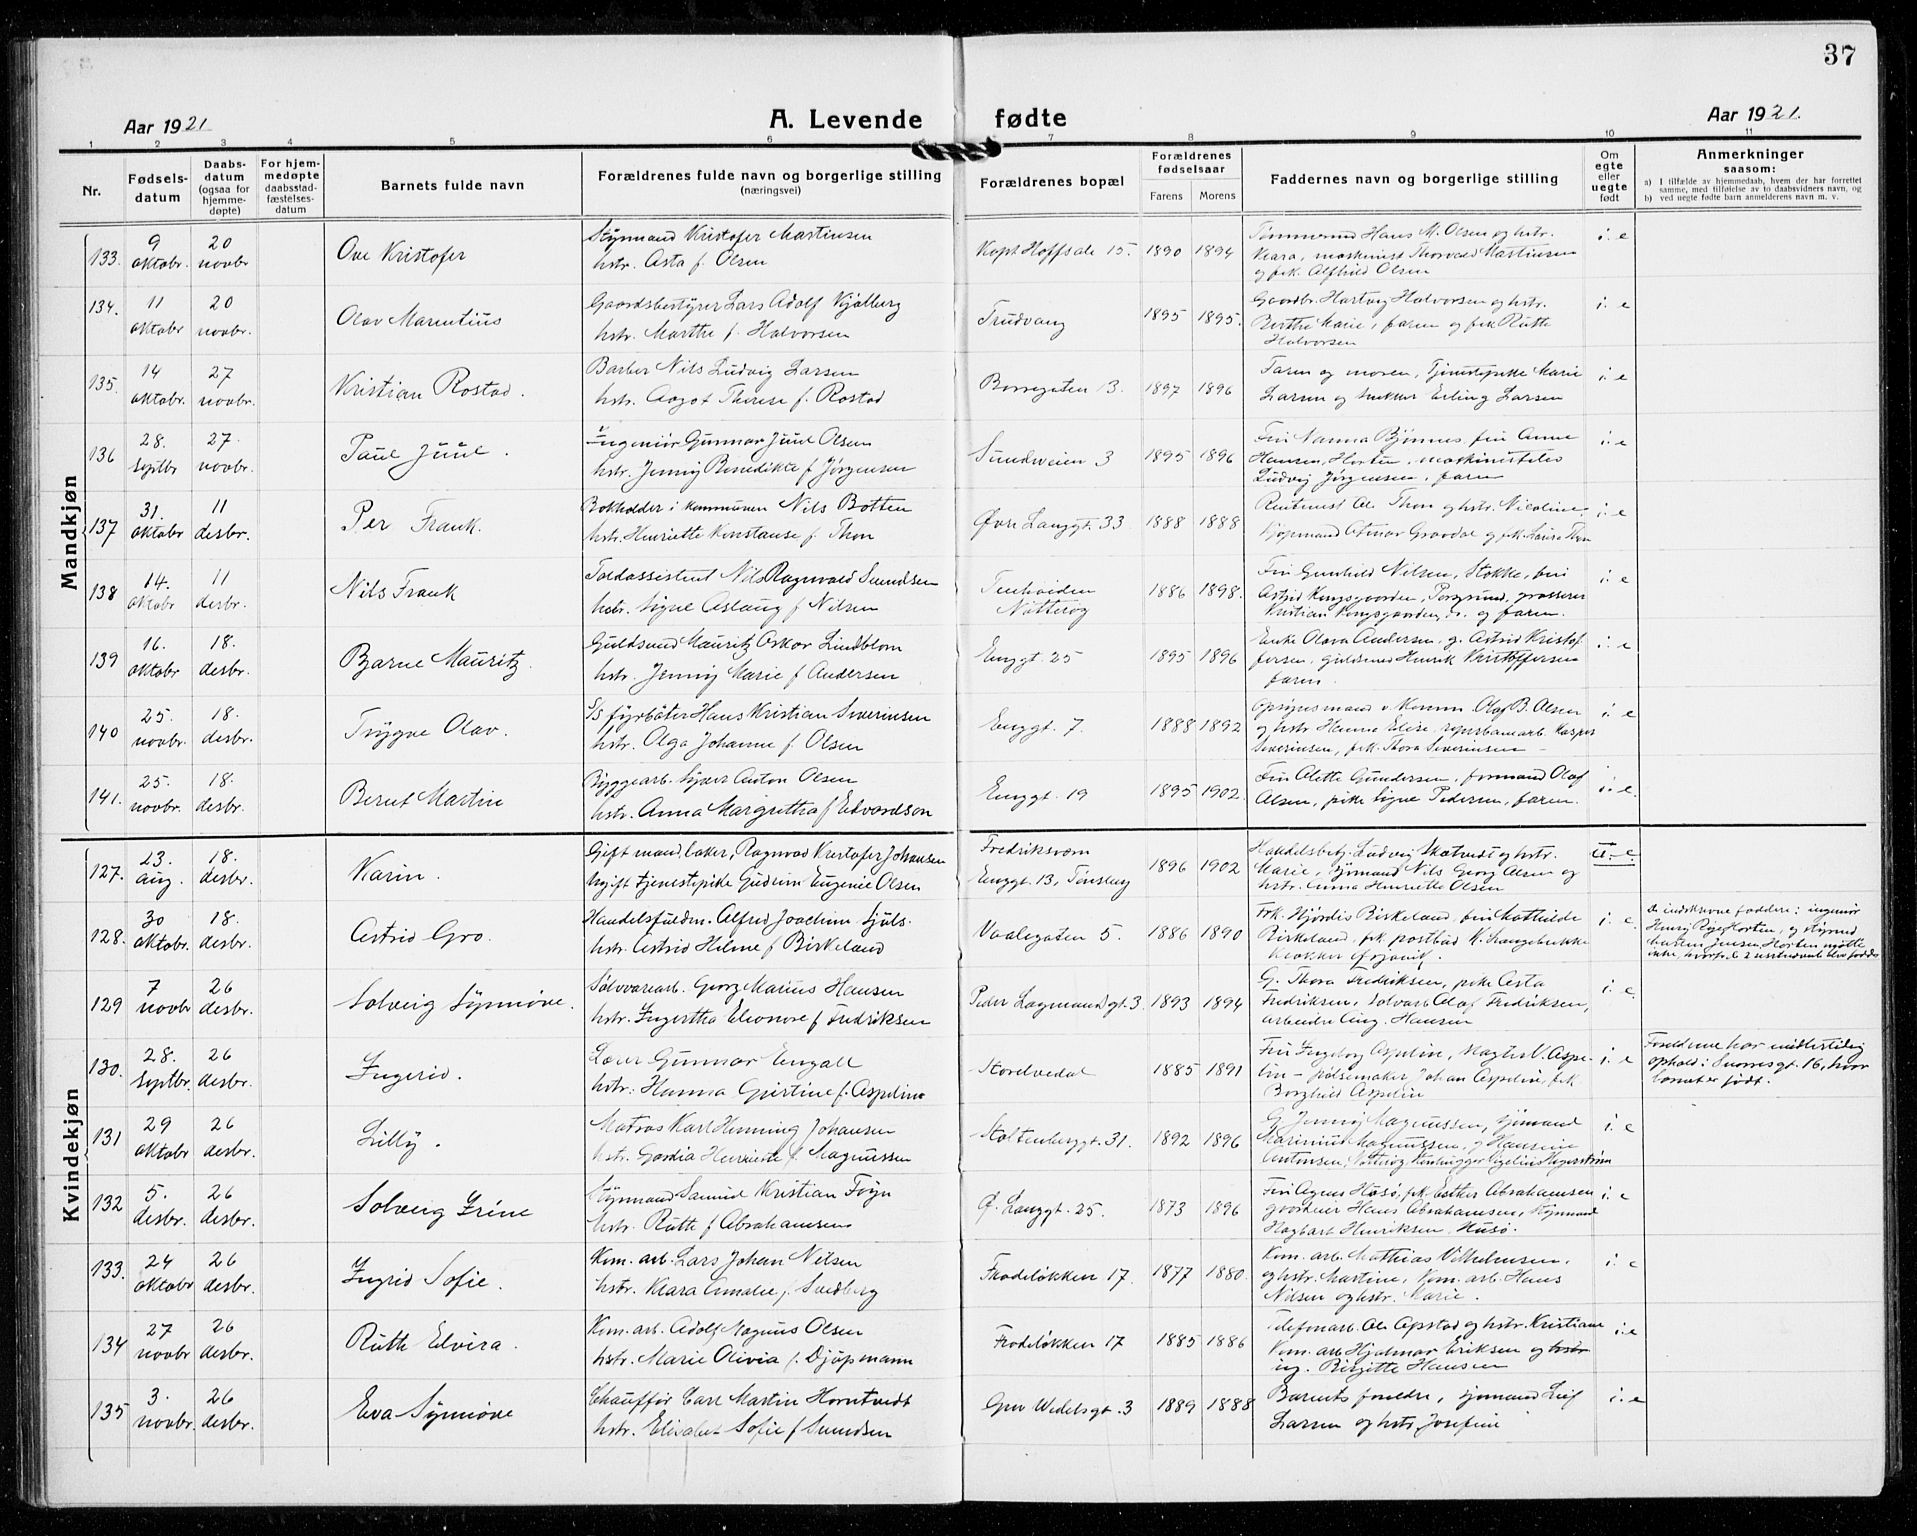 37
Aar 1921
A. Levende fødte
Aar 1921.
1 2 3 4 5 6 7 8 9 10 11
Nr.
Fødsels-
datum
Daabs-
datum
(ogsaa for
hjemme-
døpte)
For hjem-
medøpte
daabsstad-
fæstelses-
datum
Barnets fulde navn
Forældrenes fulde navn og borgerlige stilling
(næringsvei)
Forældrenes bopæl
Forældrenes
fødselsaar
Farens Morens
Faddernes navn og borgerlige stilling
Om
egte
eller
uegte
født
Anmerkninger
saasom:
a) I tilfælde av hjemmedaab, hvem der har forrettet
samme, med tilføielse av to daabsvidners navn, og
b) ved uegte fødte barn anmelderens navn m. v.
Mandkjøn
133. 9 oktobr. 20 novbr. Ove Kristofer
Styrmand Kristofer Martinsen
hstr. Asta f. Olsen
Kapt Hoffsgt 15. 1890 1894
Tømmermd Hans M. Olsen og hstr.
Klara, maskinist Thorvald Martinsen
og frk. Alfhild Olsen
i. e
134. 11 oktobr 20 novbr. Olav Marentius
Gaardsbestyrer Lars Adolf Kjølberg
hstr. Marthe f. Halvorsen
Trudvang 1895 1895.
Gaardbr. Hartvig Halvorsen og hstr.
Berthe Marie, faren og frk Ruth
Halvorsen
i. e
135. 14 oktobr. 27 novbr. Kristian Rostad.
Barber Nils Ludvig Larsen
hstr. Aagot Therese f. Rostad
Borregaten 13. 1897 1896
Faren og moren, Tjenestepike Marie
Larsen og snekker Erling Larsen
i. e
136 28. septbr 27. novbr. Paul Juul.
Ingeniør Gunnar Juul Olsen
hstr. Jenny Benedikte f Jørgensen
Sundveien 3 1895 1896
Fru Nanna Bjønnes, fru Anne
Hansen, Horten, maskinistelev
Ludvig Jørgensen, faren
i. e
137 31. oktobr 11 desbr. Per Frank.
Bokholder i kommunen Nils Botten
hstr. Henriette Konstanse f Thon
Øvre Langgt. 33 1888 1888
Rentenist Ole Thon og hstr. Nicoline
Kjøpmand Otmar Graadal og frk. Laura Thon
i. e
138 14. oktobr 11 desbr. Nils Frank
Toldassistent Nils Ragnvald Svendsen
hstr. Signe Aslaug f Nilsen
Tenheiden
Nøtterøy 1886 1898.
Fru Gunhild Nilsen, Stokke, fru
Astrid Kongsgaarden, Porsgrund, grosserer
Kristian Kongsgaarden, s. og faren.
i. e
139 16. oktobr 18. desbr. Bjarne Mauritz.
Guldsmed Mauritz Oskar Lindblom
hstr. Jenny Marie f Andersen
Enggt. 25 1895 1896
Enke Olava Andersen, g. Astrid Kristof
fersen, guldsmed Henrik Kristoffersen
faren.
i. e
140 25. novbr. 18. desbr. Trygve Olav.
S/s fyrbøter Hans Kristian Severinsen
hstr. Olga Johanne f. Olsen
Enggt. 7. 1888 1892
Opsynsmand v. komm. Olaf B. Olsen
og hstr Hanne Elise, reperbanearb. Kasper
Severinsen, frk. Thora Severinsen —
i. e
141. 25. novbr. 18. desbr. Bernt Martin
Byggearb. Sjur Anton Olsen
hstr. Anna Margretha f Edvardson
Enggt. 19 1895 1902.
Fru Alette Gundersen, formand Olaf
Olsen, pike Signe Pedersen, faren.
i. e.
Kvindekjøn
127. 23. aug. 18. desbr. Karin.
Gift mand, laker, Ragnvad Kristofer Johansen
Ugift tjenestepike Gudrun Eugenie Olsen
Fredriksværn
Enggt. 13, Tønsberg 1896 1902
Handelsbetj. Ludvig Skatvedt og hstr.
Marie, sjømand Nils Georg Olsen og
hstr. Anna Henriette Olsen
u. e.
128. 30 oktobr. 18. desbr. Astrid Gro.
Handelsfuldm. Alfred Joachim Sjuls.
hstr. Astrid Hilme f Birkeland
Vaalegaten 5. 1886 1890
Frk. Hjørdis Birkeland, fru Mathilde
Birkeland, frk. postbud K. Langebrekke
i. e.
De indskrevne faddere: ingeniør
Henry Rye Horten, og styrmd
Jensen, Horten møtte
ikke, hvorfor 2 blev faddere
129 7 novbr 26 desbr. Solveig Synnøve.
Sølvvarearb. Georg Marius Hansen
hstr. Ingertha Eleonore f Fredriksen
Peder Lagmandsgt. 3 1893 1894
G. Thora Fredriksen, pike Asta
Fredriksen, Sølvarb Olaf Fredriksen,
arbeider Aug. Hansen
i. e.
130. 28. septbr. 26 desbr. Ingerid.
Lærer Gunnar Engall
hstr: Hanna Gjertine f. Aspelin
Stordvedal 1885 1891
Fru Ingeborg Aspelin, Magter V. Aspe-
lin – pølsemaker Johan Aspelin, frk.
Borghild Aspelin
i. e
Foreldrene har midlertidig
ophold i Snorresgt. 16, hvor
barnet er født.
131 29 oktobr 26 desbr. Lilly.
Matros Karl Henning Johansen
hstr. Gardia Henriette f. Magnussen
Stoltenberggt. 31. 1892 1896
G. Jenny Magnussen, sjømand
Marinius Magnussen, g. Hansine
Antonsen, Nøtterøy, Stenhugger
i. e
132 5. desbr. 26 desbr. Solveig Irene
Styrmand Samuel Kristian Føyn
hstr. Ruth f Abrahamsen
Ø. Langgt. 25. 1873 1896
Fru Agnes Husø, frk. Esther Abrahamsen
gaardeier Hans Abrahamsen, Styrmand
Hagbart Henriksen, Husø.
i. e
133. 24 oktobr 26 desbr. Ingrid Sofie.
Kom. arb. Lars Johan Nilsen
hstr. Klara Amalie f. Svedberg
Frodeløkken 17. 1877 1880.
Kom. arb. Mathias Vilhelmsen,
og hstr. Martine, Kom. arb. Hans
Nilsen og hstr. Marie.
i. e
134 27 novbr 26 desbr. Ruth Elvira.
Kom. arb. Adolf Magnus Olsen
hstr. Marie Olivia f. Djupmann
Frodeløkken 17 1885 1886
Telefonarb. Ole Opstad og hstr. Kristiane
Kom. arb Hjalmar Eriksen og hstr
ug. Birgitte Hansen
i. e
135 3. novbr. 26 desbr. Eva Synnøve
Chauffør Carl Martin Horntvedt
hstr. Elisabet Sofie f Svendsen
Grev Wedelsgt. 3 1889 1888
Barnets foreldre, sjømand Leif
Larsen og hstr. Josefine
i. e